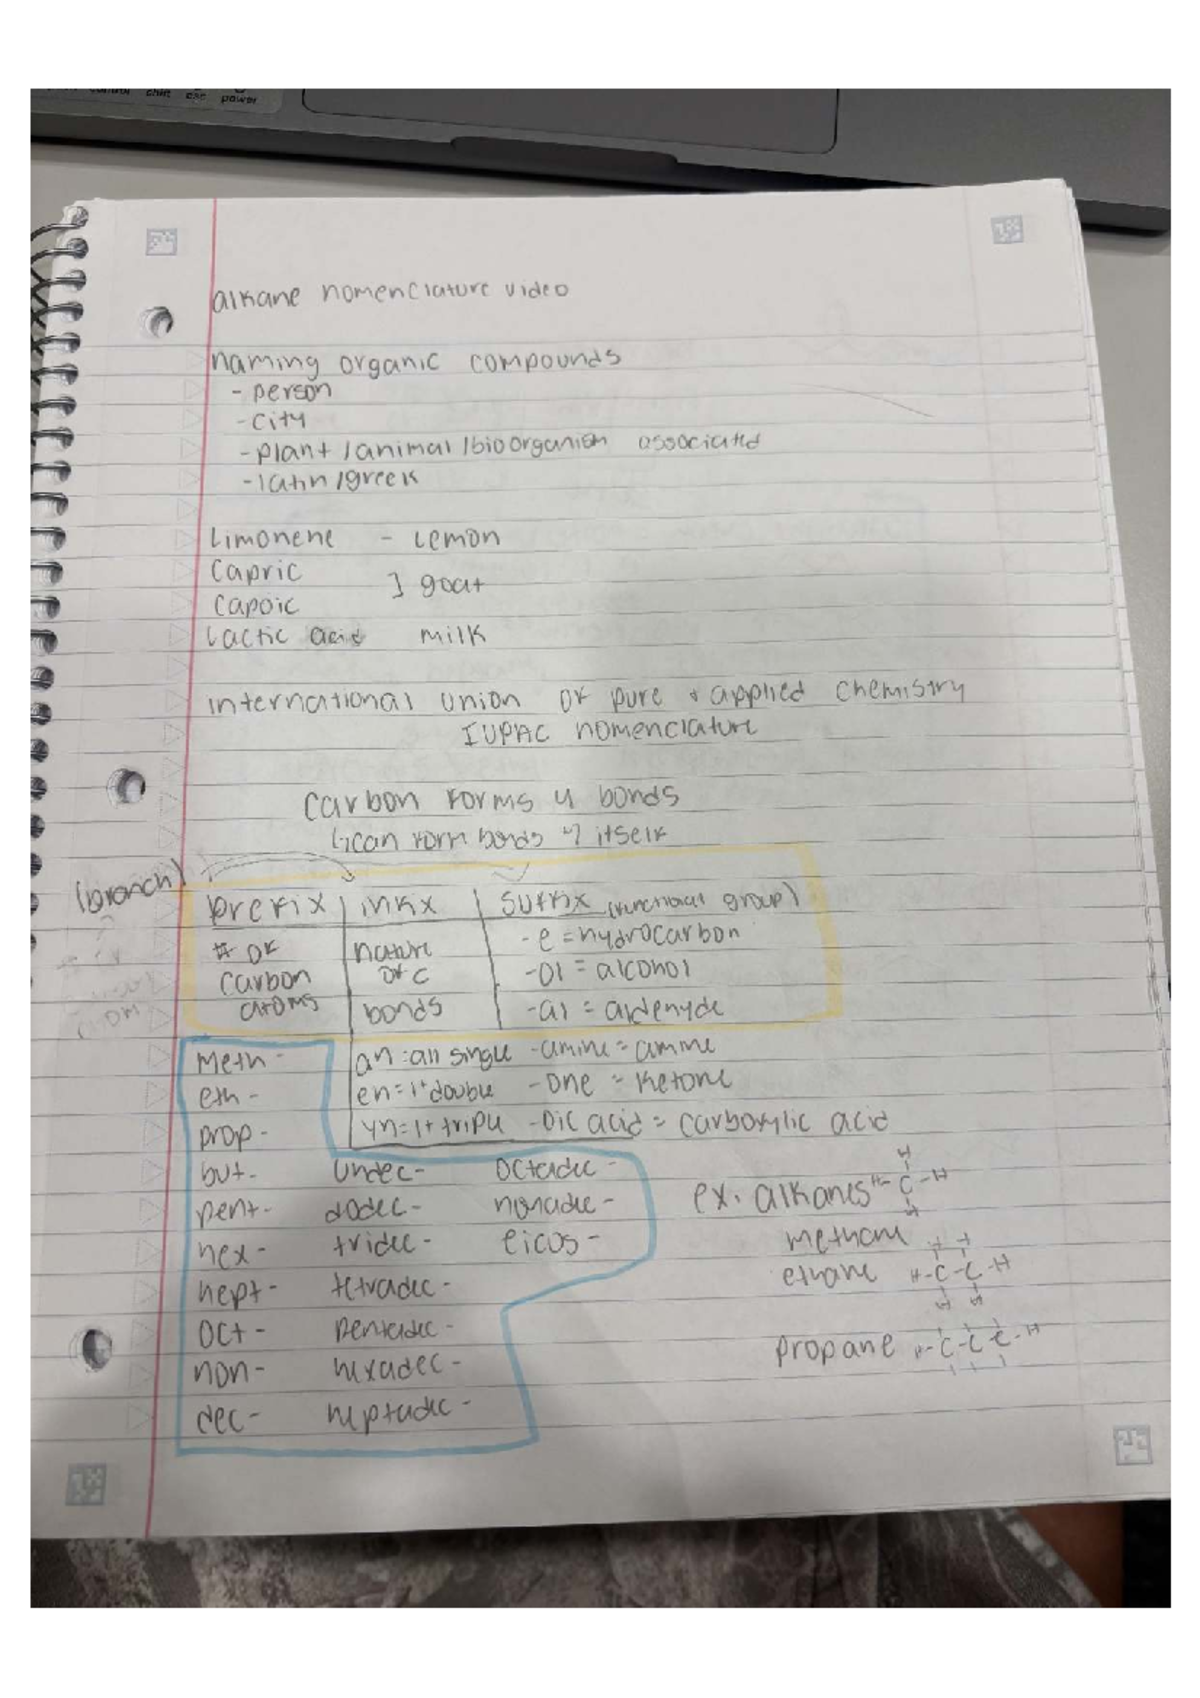 control shift esc power
alkane nomenclature video
naming organic compounds
- person
- city
- plant / animal / bio organism associated
- latin / greek
Limonene - Lemon
Capric
] goat
Capoic
Lactic acid milk
international union of pure & applied chemistry
IUPAC nomenclature
carbon forms 4 bonds
↳ can form bonds w/ itself
(branch)
prefix | infix | suffix (functional group)
# of nature -e = hydrocarbon
carbon of C -ol = alcohol
atoms bonds -al = aldehyde
meth- an: all single -amine = amine
eth- en = 1+ double -one = ketone
prop- yn = 1+ triple -oic acid = carboxylic acid
but- undec- octadec-
pent- dodec- nonadec-
hex- tridec- eicos-
hept- tetradec-
oct- pentadec-
non- hexadec-
dec- heptadec-
ex. alkanes H-C-H
H
H
methane
ethane H-C-C-H
H H
H H
propane H-C-C-C-H